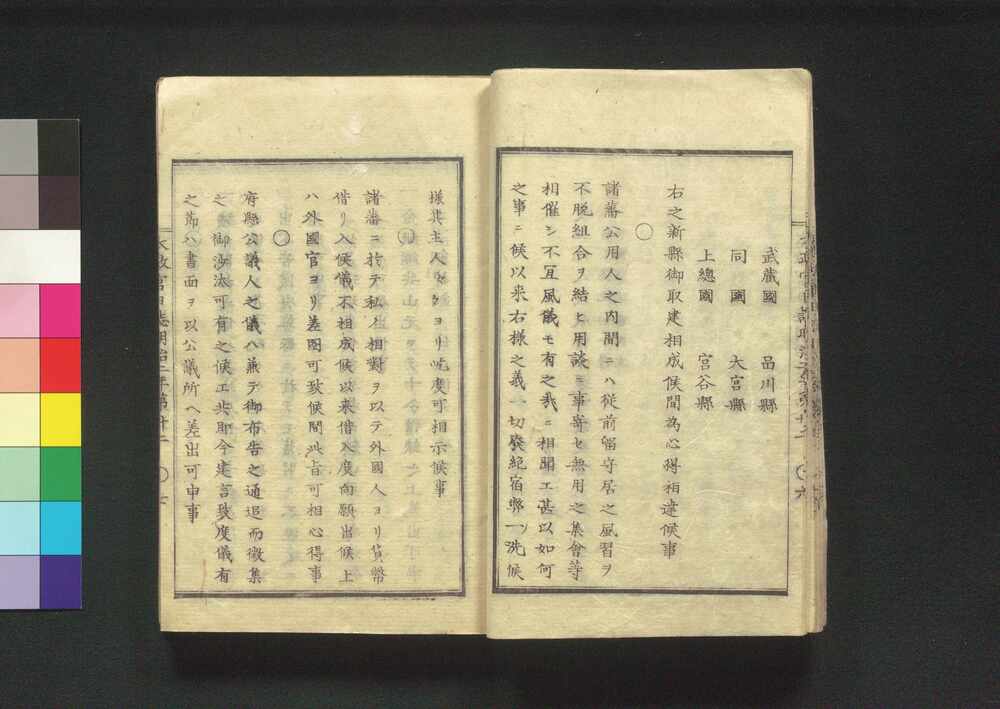 武蔵國 品川縣
同國 大宮縣
上總國 宮谷縣
右之新縣御取建相成候間為心得相達候事
○
諸藩公用人之内間ニハ従前留守居之風習ヲ
不脱組合ヲ結ヒ用談ニ事寄セ無用之集會等
相催シ不宜風儀モ有之哉ニ相聞エ甚以如何
之事ニ候以来右様之義一切廢絶宿弊一洗候
様其主人々々ヨリ屹度可相示候事
○
諸藩ニ於テ私ニ相對ヲ以テ外國人ヨリ貨幣
借リ入候儀不相成候以来借入度向願出候上
ハ外國官ヨリ差圖可致候間此旨可相心得事
○
府縣公議人之儀ハ兼テ御布告之通追而徴集
之御沙汰可有之候エ共即今建言致度儀有
之節ハ書面ヲ以公議所ヘ差出可申事